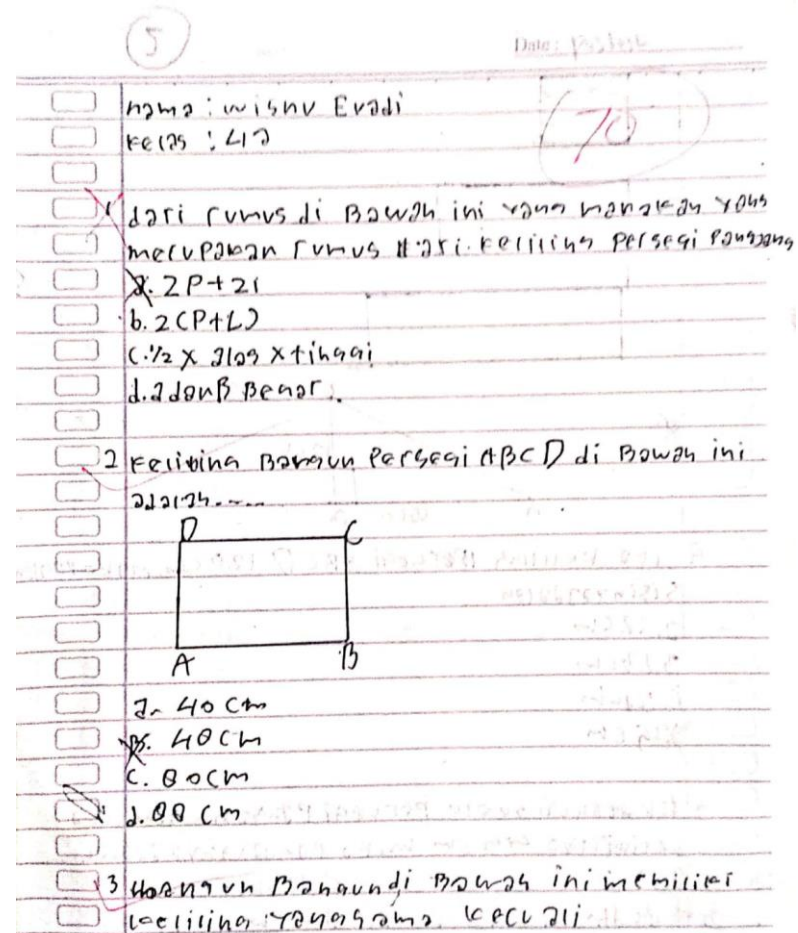 5
Date:
nama : wisnu Evadi
kelas : 4a
70
1 dari rumus di Bawah ini yang manakah yang
merupakan rumus dari keliling persegi panjang
a. 2P+2l
b. 2(P+L)
c. 1/2 x alas x tinggi
d. a dan B Benar.
2 keliling Bangun Persegi ABCD di Bawah ini
adalah....
D C
A B
a. 40 cm
b. 48 cm
c. 80 cm
d. 88 cm
3 Bangun di Bawah ini memiliki
keliling yang sama kecuali